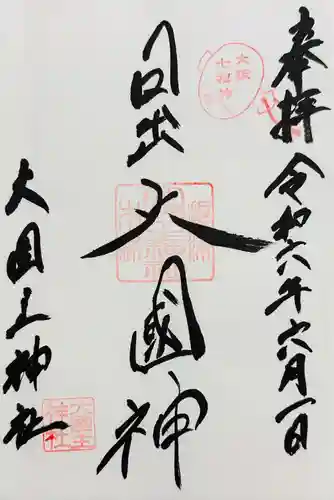 奉拝
令和六年六月一日
日出大國神
大国主神社
大阪
七福神
大國主
神社